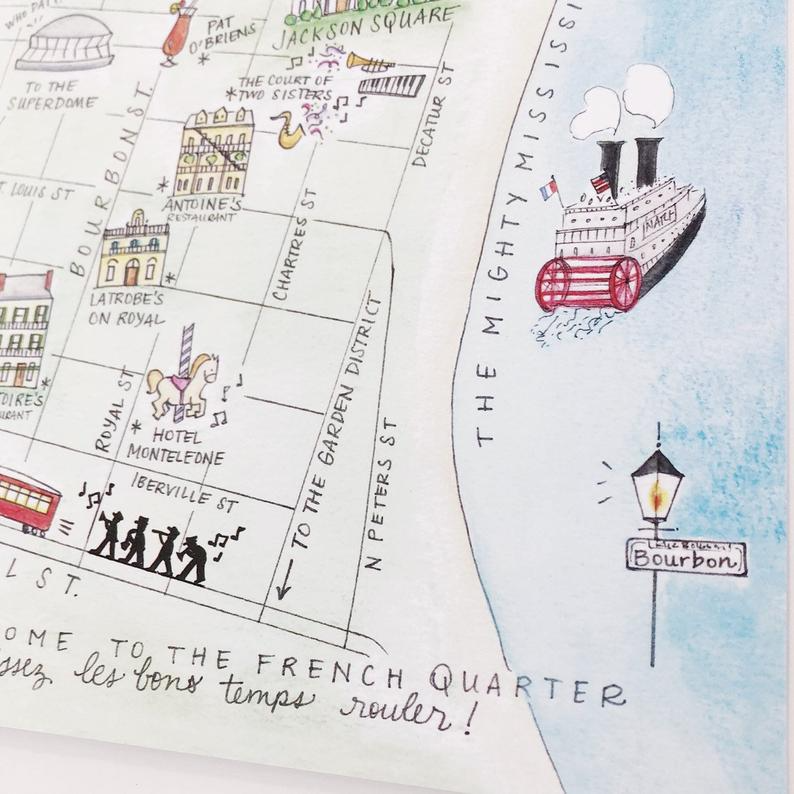 WHO DAT!
PAT
O'BRIENS
JACKSON SQUARE
TO THE
SUPERDOME
THE COURT OF
TWO SISTERS
BOURBON ST.
DECATUR ST
THE MIGHTY MISSISSI
NATCH
LOUIS ST
ANTOINE'S
RESTAURANT
CHARTRES ST
LATROBE'S
ON ROYAL
OIRE'S
URANT
ROYAL ST
HOTEL
MONTELEONE
IBERVILLE ST
TO THE GARDEN DISTRICT
N PETERS ST
Bourbon
L ST.
OME TO THE FRENCH QUARTER
ssez les bons temps rouler!